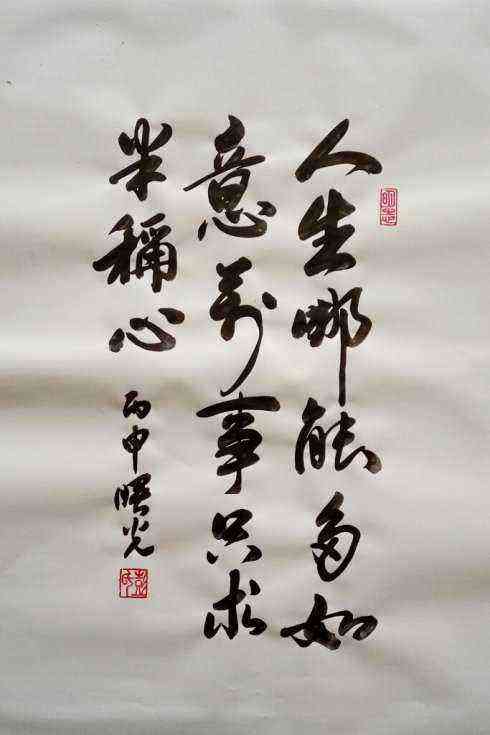 人生哪能多如
意萬事只求
半稱心
丙申曙光